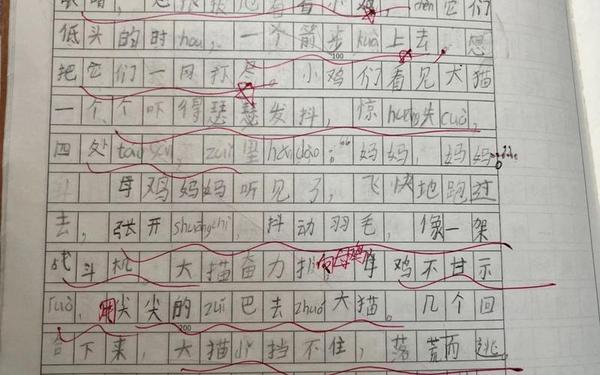 着小鸡,chèn它们
低头的时hou,一个箭步kuà上去,想
把它们一网打尽。小鸡们看见大猫
一个个吓得瑟瑟发抖,惊huāng失cuò,
四处táo,zuǐ里hǎndào:“妈妈,妈妈
母鸡妈妈听见了,飞快地跑过
去,张开shuāngchì,抖动羽毛,像一架
战斗机,大猫奋力扑向母鸡,母鸡不甘示
ruò,用尖尖的zuǐ巴去zhuó大猫。几个回
合下来,大猫挡不住,落荒而逃。
100
200